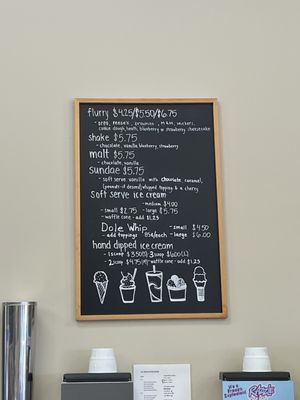 flurry $4.25/$5.50/$6.75
- oreo, reese's, brownies, M&M, snickers,
cookie dough, heath, blueberry or strawberry cheesecake
shake $5.75
- chocolate, vanilla, blueberry, strawberry
malt $5.75
- chocolate, vanilla
sundae $5.75
- soft serve vanilla with chocolate, caramel,
(peanuts-if desired) whipped topping & a cherry
soft serve ice cream
- medium $4.00
- small $2.75 - large $5.75
- waffle cone - add $1.25
Dole Whip - small $4.50
- add toppings 85¢/each - large $6.00
hand dipped ice cream
- 1 scoop $3.50(S) 3 scoop $6.00(L)
- 2 scoop $4.75(M) - waffle cone - add $1.25